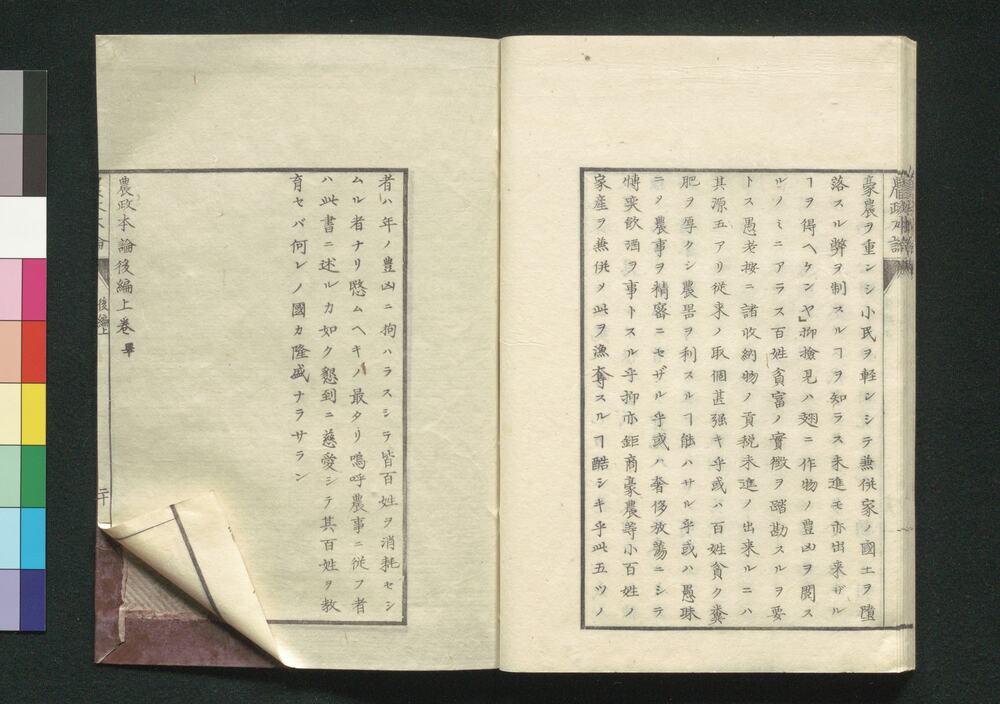 豪農ヲ重ンシ小民ヲ輕ンシテ兼倂家ノ國土ヲ墮
落スル弊ヲ制スルヿヲ知ラス未進モ亦出来ザル
ヿヲ得ヘケンヤ」抑撿見ハ翅ニ作物ノ豊凶ヲ閲ス
ルノミニアラス百姓貧富ノ實徴ヲ踏勘スルヲ要
トス愚老按ニ諸收納物ノ貢税未進ノ出来ルニハ
其源五アリ従来ノ取個甚强キ乎或ハ百姓貪ク糞
肥ヲ厚クシ農噐ヲ利スルヿ能ハサル乎或ハ愚昧
ニノ農事ヲ精密ニセザル乎或ハ奢侈放蕩ニシテ
愽奕飲酒ヲ事トスル乎抑亦鉅商豪農等小百姓ノ
家産ヲ兼倂ノ此ヲ漁奪スルヿ酷シキ乎此五ツノ
者ハ年ノ豊凶ニ拘ハラスシテ皆百姓ヲ消耗セシ
ムル者ナリ愍ムヘキノ最タリ嗚呼農事ニ従フ者
ハ此書ニ述ルカ如ク懇到ニ慈愛シテ其百姓ヲ教
育セバ何レノ國カ隆盛ナラサラン
農政本論後編上卷畢
後編上
二十